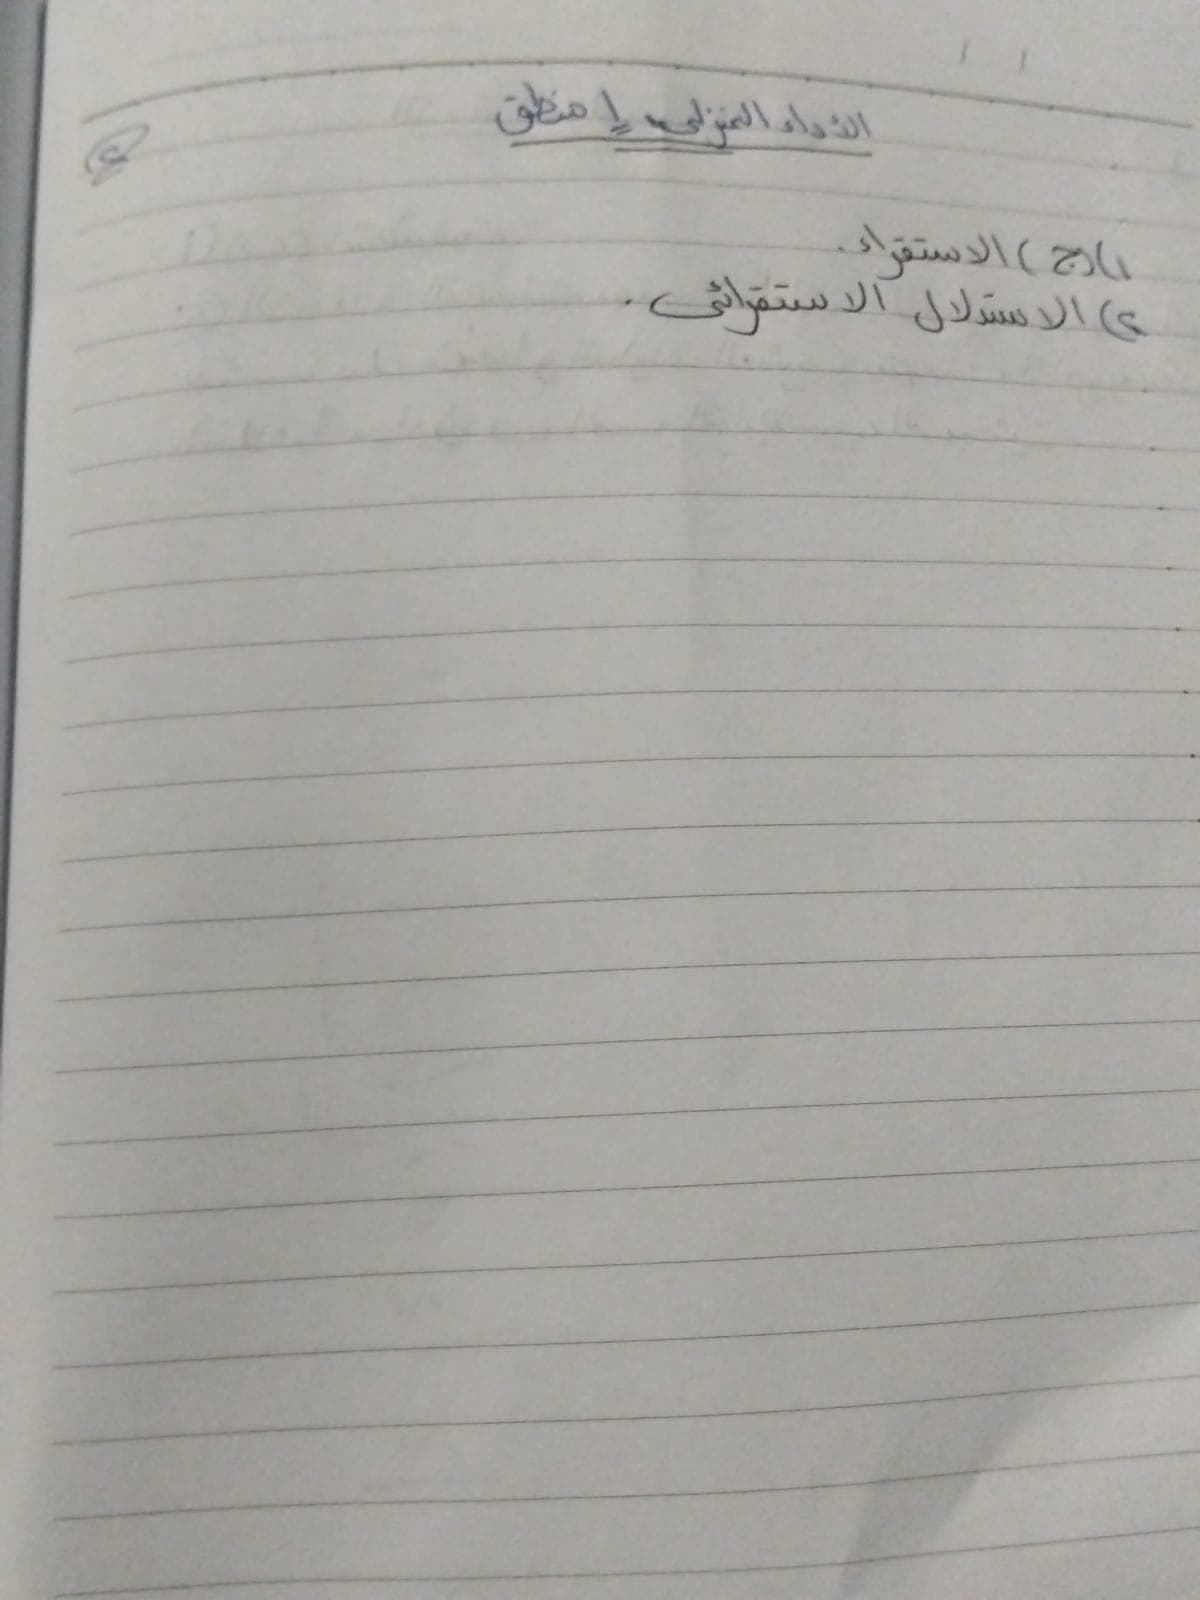 الأداء المنزلي لـ منطق
٢
١) (ج) الاستقراء.
٢) الاستدلال الاستقرائى.